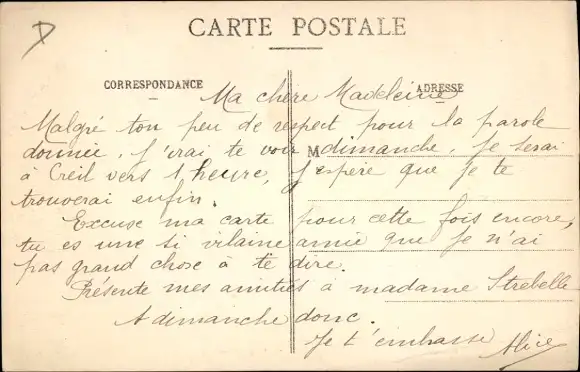 CARTE POSTALE
CORRESPONDANCE
ADRESSE
Ma chère Madeleine
Malgré ton peu de respect pour la parole
donnée, j'irai te voir dimanche, je serai
M
à Creil vers 1 heure, j'espère que je te
trouverai enfin.
Excuse ma carte pour cette fois encore,
tu es une si vilaine amie que je n'ai
pas grand chose à te dire.
Présente mes amitiés à madame Strebelle
A dimanche donc.
Je t'embrasse Alice